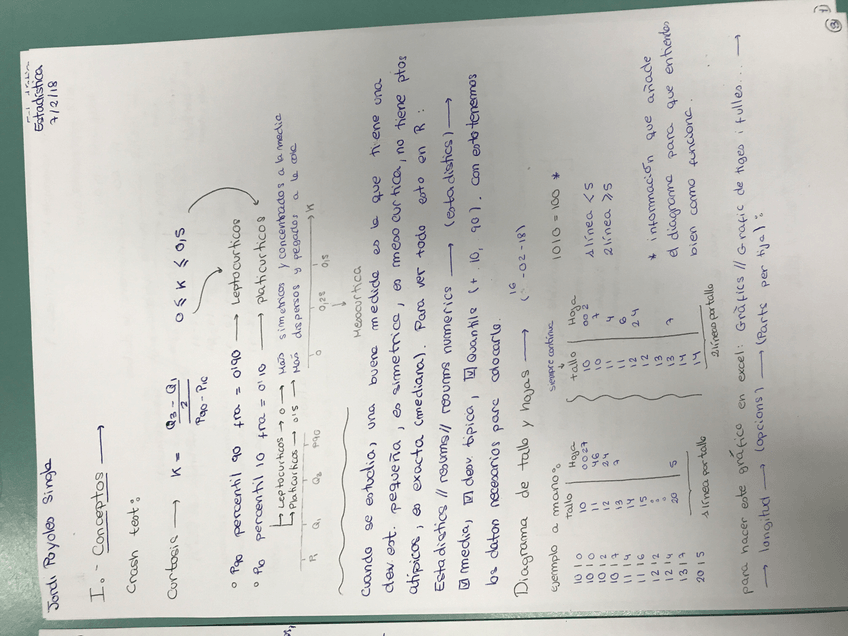 Jordi Payoles Singla
Estadística
7/2/18
I.- Conceptos →
Crash test:
Curtosis → K = (Q3 - Q1)/2 / P90 - P10    0 ≤ K ≤ 0,5
° P90 percentil 90 fra = 0'90 → Leptocurticos
° P10 percentil 10 fra = 0'10 → platicurticos
↳ Leptocurticos → 0 → Más simetricos y concentrados a la media
↳ Platicurticos → 0'5 → Más dispersos y pegados a la
P1 Q1 Q3 P90
0 0,25 0,5 K
Mesocurtica
Cuando se estudia, una buena medida es la que tiene una
desv est. pequeña, es simetrica, es meso curtica, no tiene ptos
atípicos, es exacta (mediana). Para ver todo esto en R:
Estadistics // resums // resums numerics → (estadistics) →
☑ media, ☑ desv. tipica, ☑ Quantile (+ .10, 90). Con esto tenemos
los datos necesarios para colocarlo.
Diagrama de tallo y hojas → (16-02-18)
ejemplo a mano:
siempre continua
1010 = 100 *
10 | 0
10 | 0
10 | 2
10 | 7
11 | 4
11 | 6
12 | 2
12 | 4
13 | 7
20 | 5
Tallo | Hoja
10 | 0027
11 | 46
12 | 24
13 | 7
14
15
20 | 5
1 línea por tallo
Tallo | Hoja
10 | 002
10 | 7
11 | 4
11 | 6
12 | 24
12
13
13 | 7
14
14
2 líneas por tallo
1 línea < 5
2 línea ≥ 5
* información que añade
el diagrama para que entiendas
bien como funciona.
para hacer este gráfico en excel: Gràfics // Grafic de tiges i fulles... →
→ longitud → (opcions) → (Parts per tija):